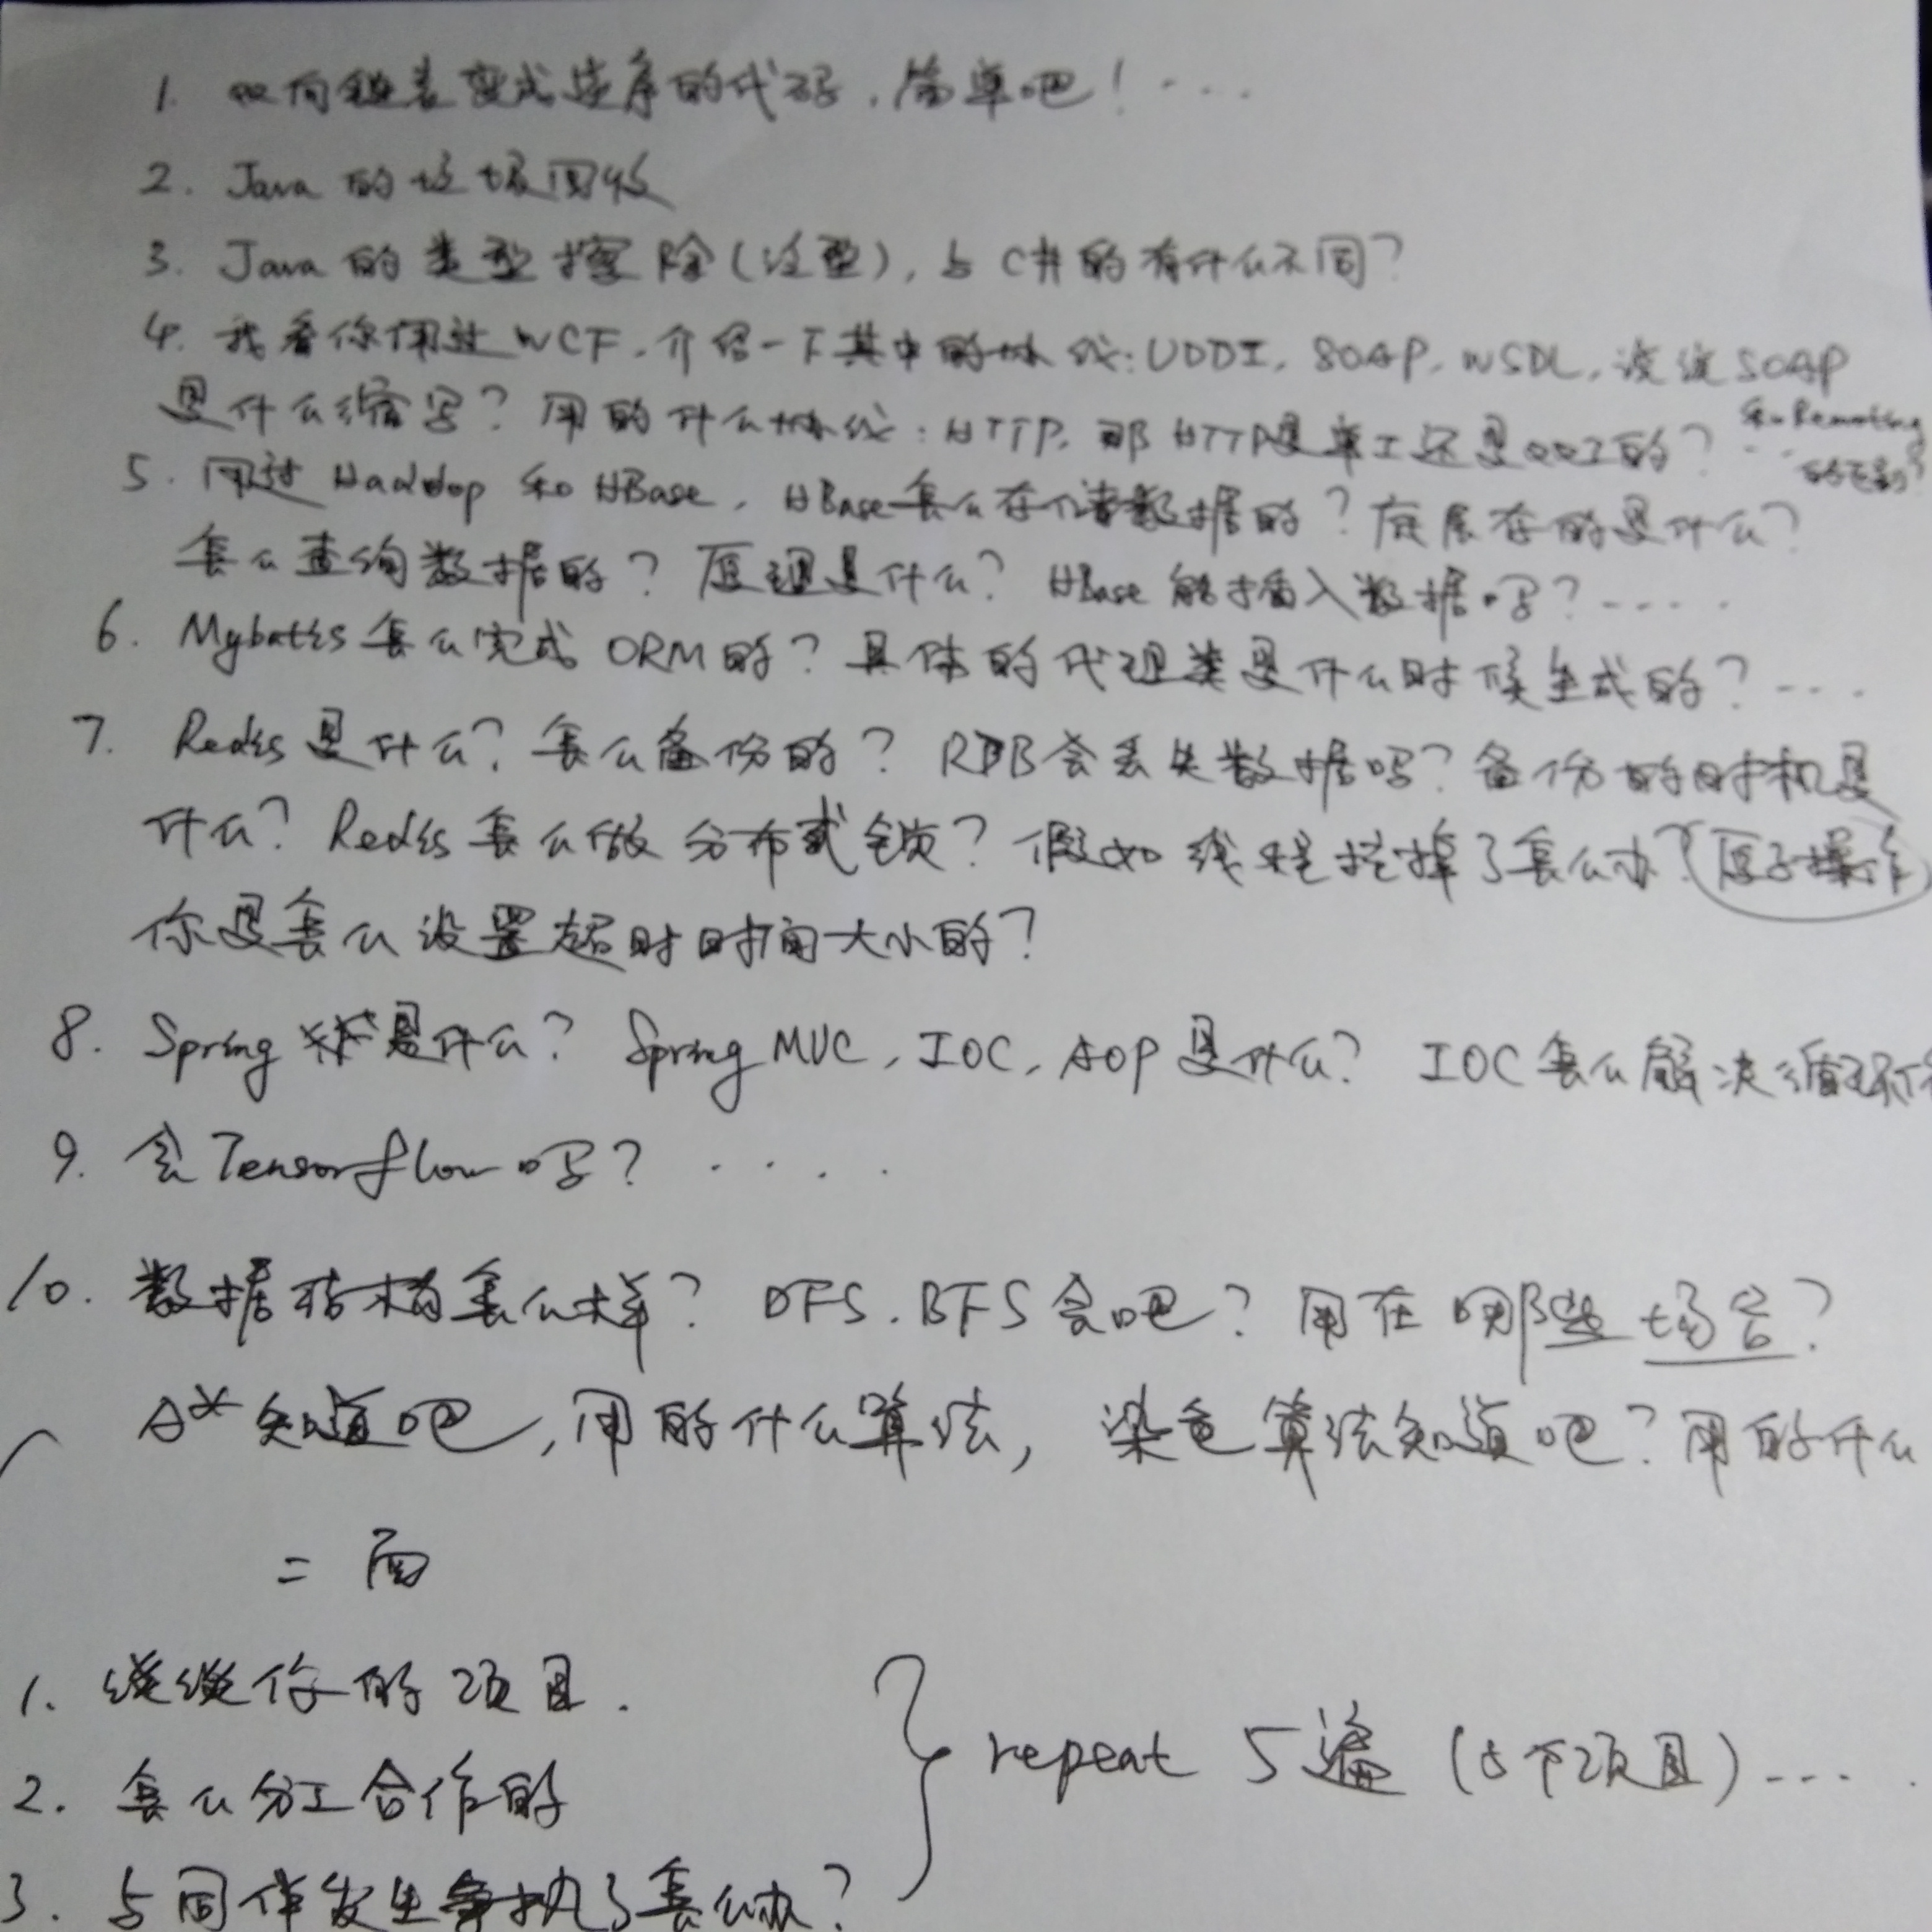 1. 双向链表变成逆序的代码，简单吧！....
2. Java 的垃圾回收
3. Java 的类型擦除（泛型），与 C# 的有什么不同？
4. 我看你用过 WCF，介绍一下其中的协议：UDDI，SOAP，WSDL，说说 SOAP
是什么缩写？用的什么协议：HTTP，那 HTTP是单工还是双工的？....
和Remoting
的区别？
5. 用过 Haddop 和 HBase，HBase怎么存储数据的？底层存的是什么？
怎么查询数据的？原理是什么？HBase 能插入数据吗？.....
6. Mybatis 怎么完成 ORM的？具体的代理类是什么时候生成的？....
7. Redis是什么？怎么备份的？RDB会丢失数据吗？备份的时机是
什么？Redis 怎么做分布式锁？假如线程挂掉了怎么办？（原子操作
你是怎么设置超时时间大小的？
8. Spring 是什么？Spring MVC，IOC，AOP 是什么？IOC 怎么解决循环
9. 会Tensorflow吗？....
10. 数据结构怎么样？DFS.BFS会吧？用在哪些场合？
A*知道吧，用的什么算法，染色算法知道吧？用的什么
二面
1. 谈谈你的项目.
2. 怎么分工合作的
3. 与同伴发生争执了怎么办？
repeat 5遍（5个项目）....